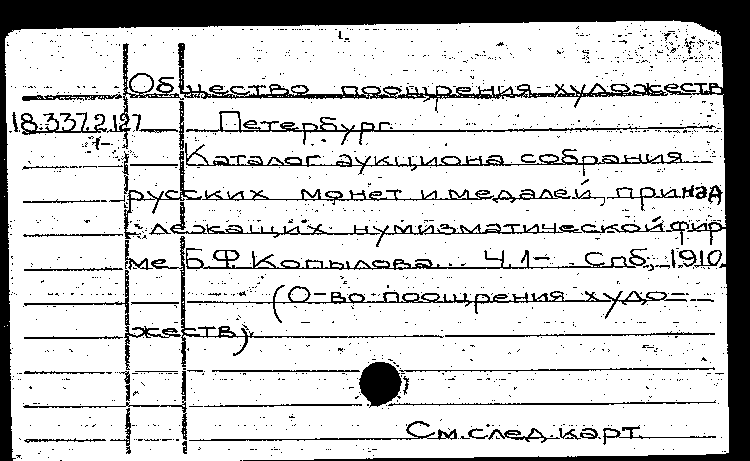 Общество поощрения художеств
18.337.2.127 Петербург.
1-
Каталог аукциона собрания
русских монет и медалей, принад
лежащих нумизматической фир
ме Б.Ф. Копылова... Ч.1- . Спб, 1910.
(О-во поощрения худо-
жеств).
См. след. карт.